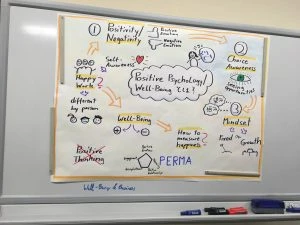 ① Positivity/
Negativity
Positive
Emotions
Negative
Emotions
②
Choice
Awareness
Self-
Awareness
Positive Psychology/
Well-Being とは?
Happy
World
different
by person
Seeing
opportunities
③
Mindset
Fixed
Growth
Well-Being
How to
measure
happiness
Positive
Thinking
PERMA
Well-Being & Business